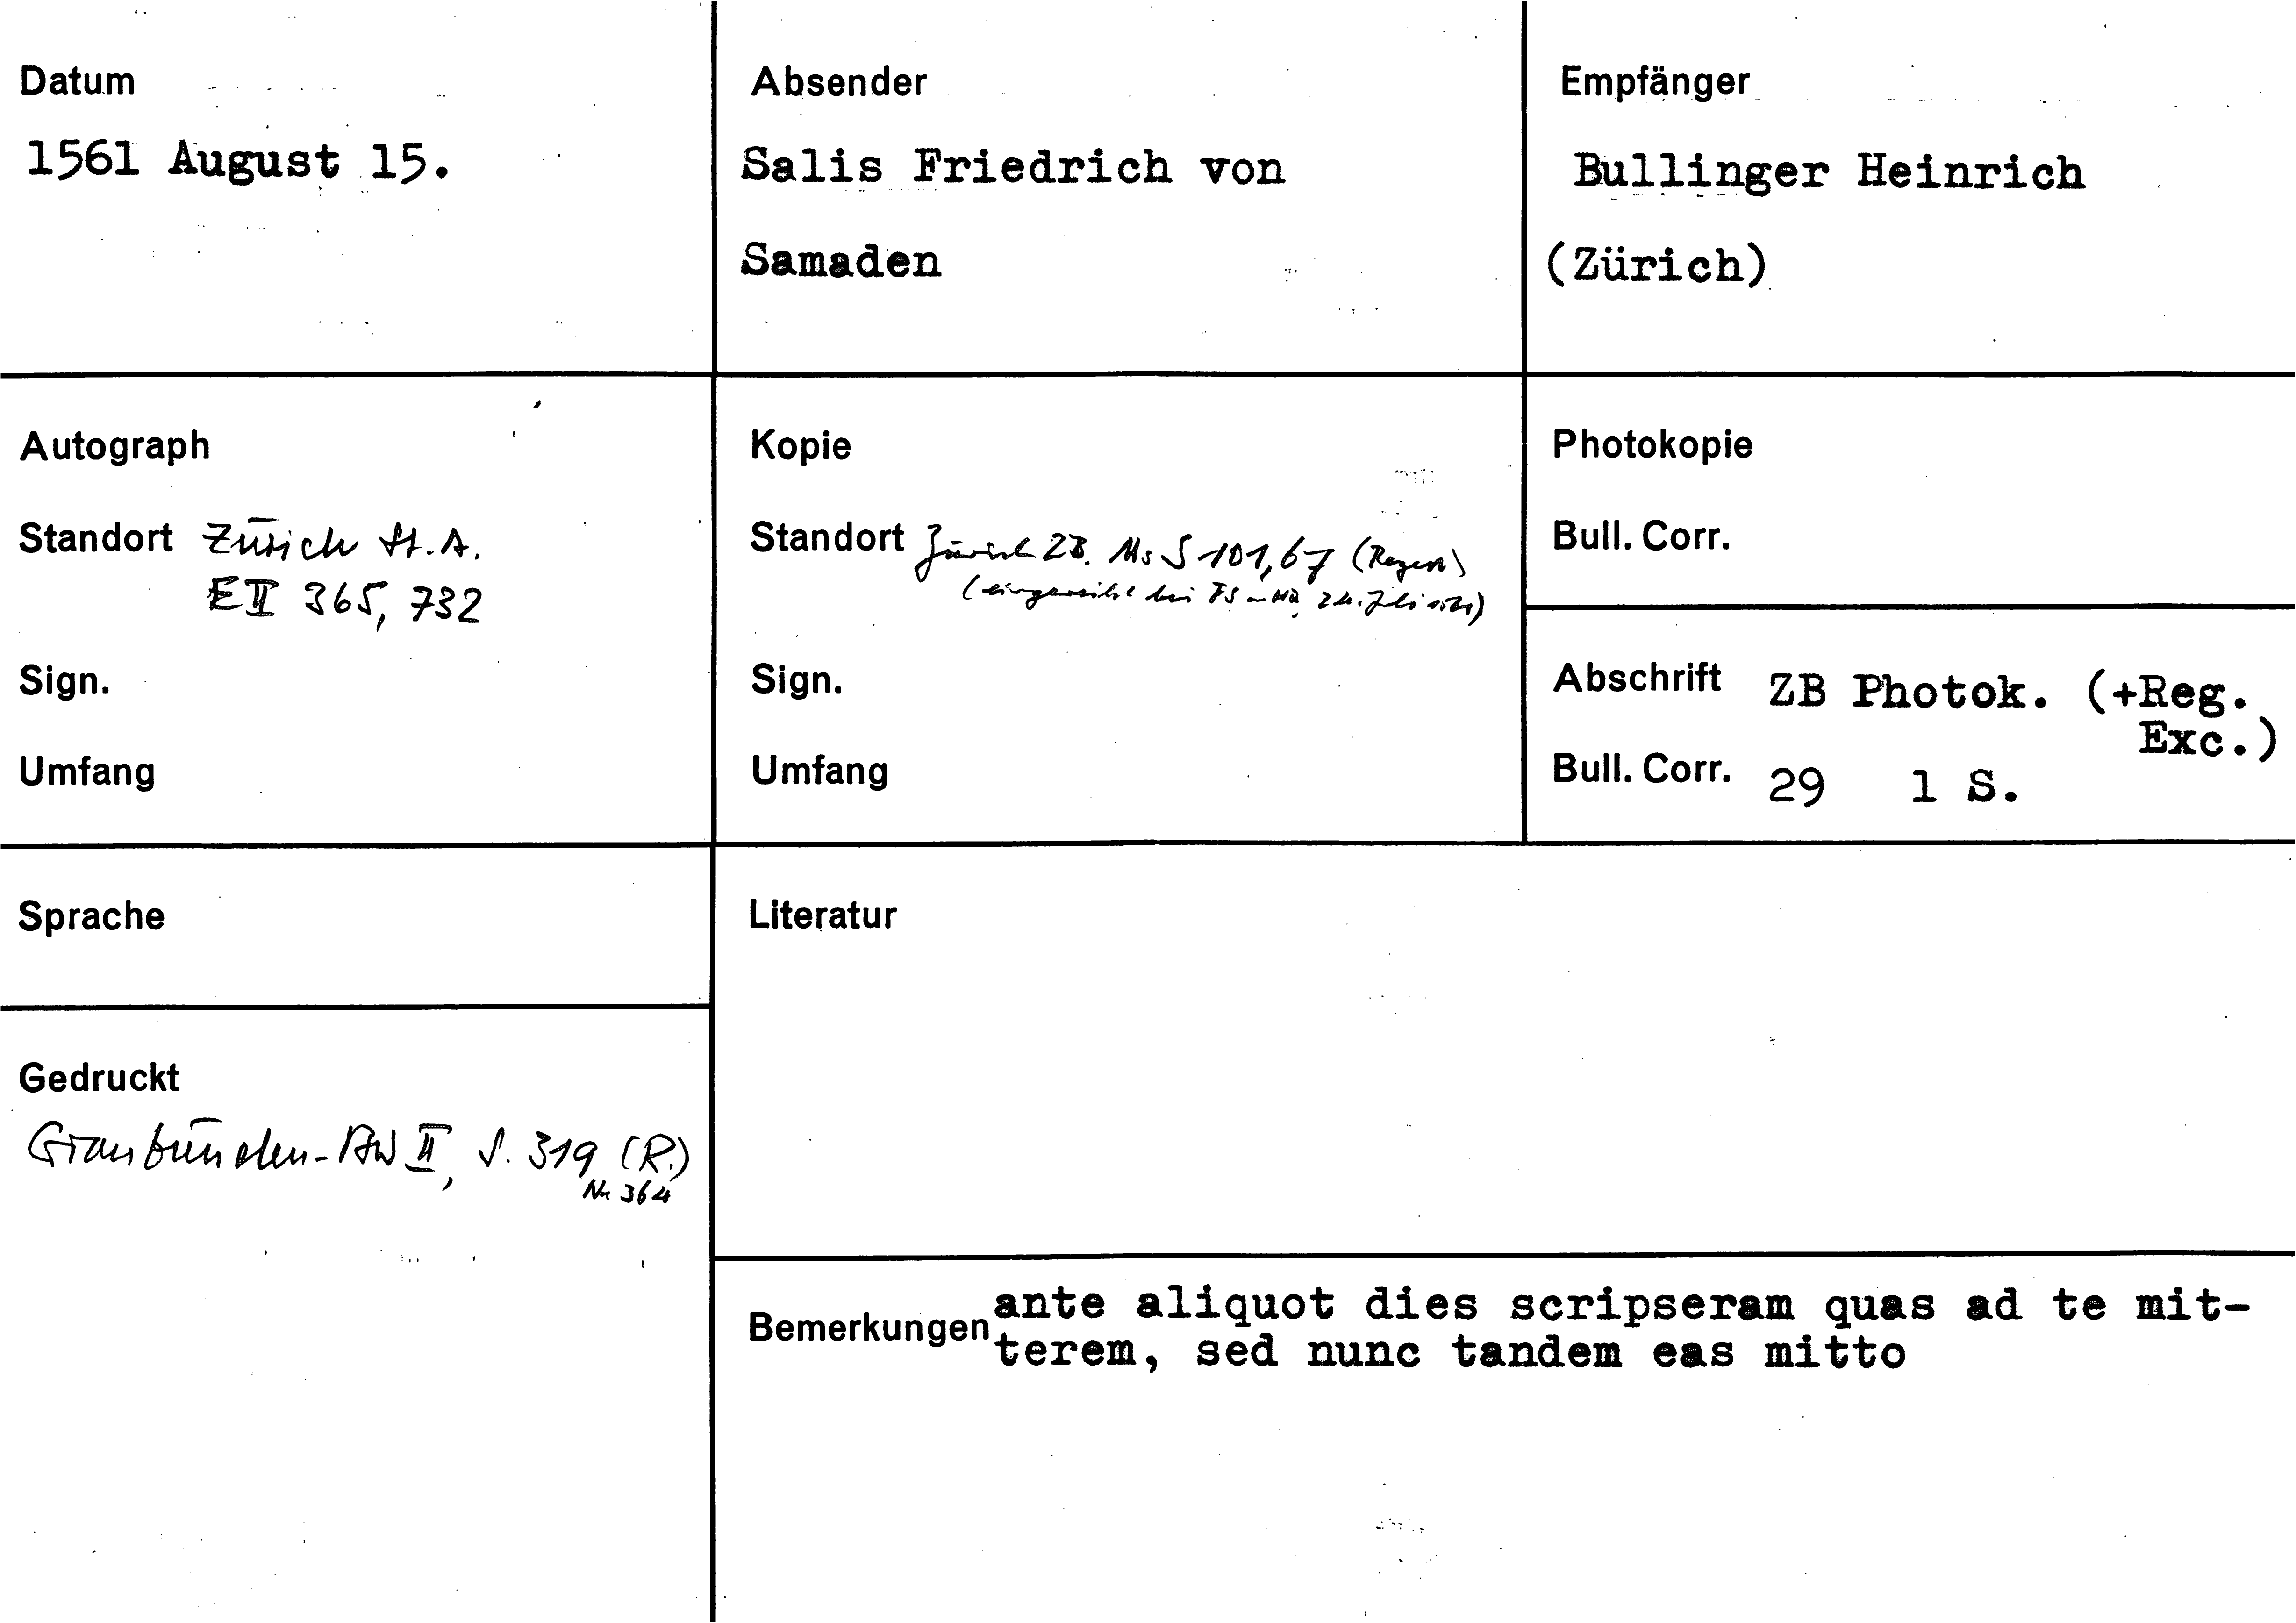 Datum
1561 August 15.
Absender
Salis Friedrich von
Samaden
Empfänger
Bullinger Heinrich
(Zürich)
Autograph
Standort Zürich St.A.
E II 365, 732
Sign.
Umfang
Kopie
Standort Zürich ZB. Ms S 101,67 (Regest)
(eingereiht bei FS 24. Juli
Sign.
Umfang
Photokopie
Bull. Corr.
Abschrift ZB Photok. (+Reg.
Exc.)
Bull. Corr. 29 1 S.
Sprache
Gedruckt
Graubünden-BW II, S. 319 (R.)
Nr 364
Literatur
Bemerkungen ante aliquot dies scripseram quas ad te mit-
terem, sed nunc tandem eas mitto